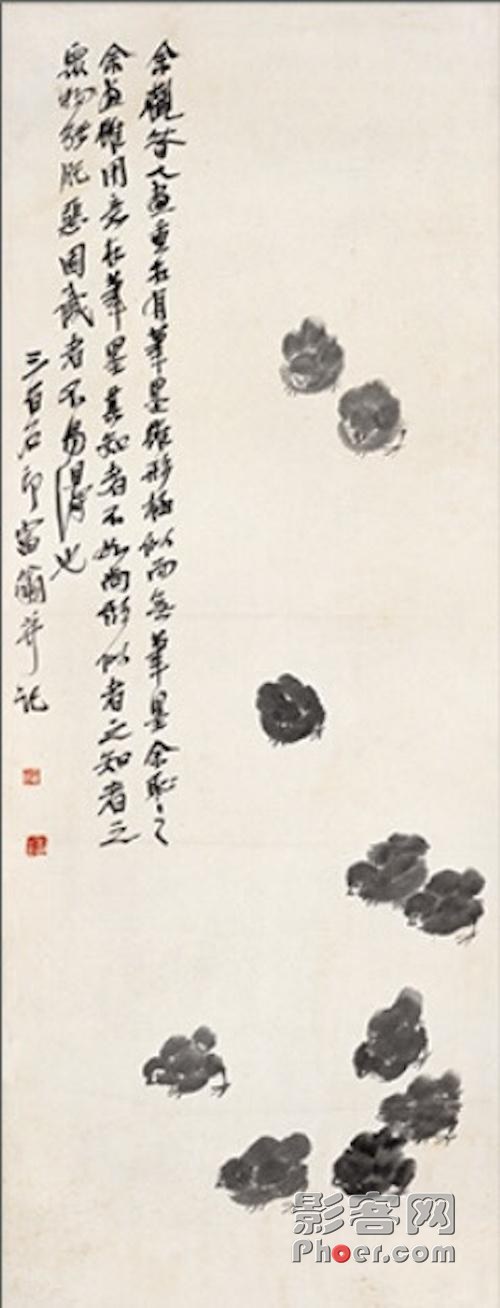 余觀昔人畫重在有筆墨雖形極似而無筆墨余耻之
余畫雖用意在筆墨其知者不如尚形似者之知者之
眾物能脫惡因識者不易得也
三百石印富翁并記
影客网
Phoer.com